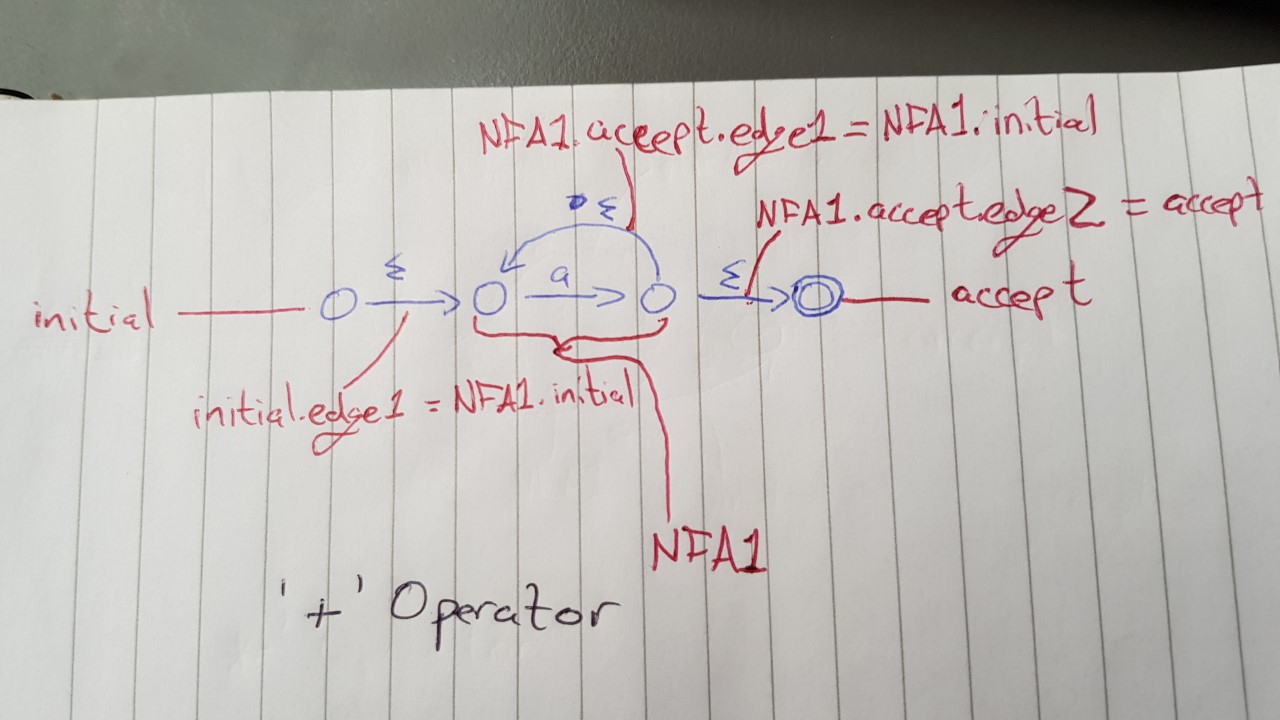 NFA1.accept.edge1 = NFA1.initial
NFA1.accept.edge2 = accept
ε
ε
a
ε
initial
accept
initial.edge1 = NFA1.initial
NFA1
'+' Operator